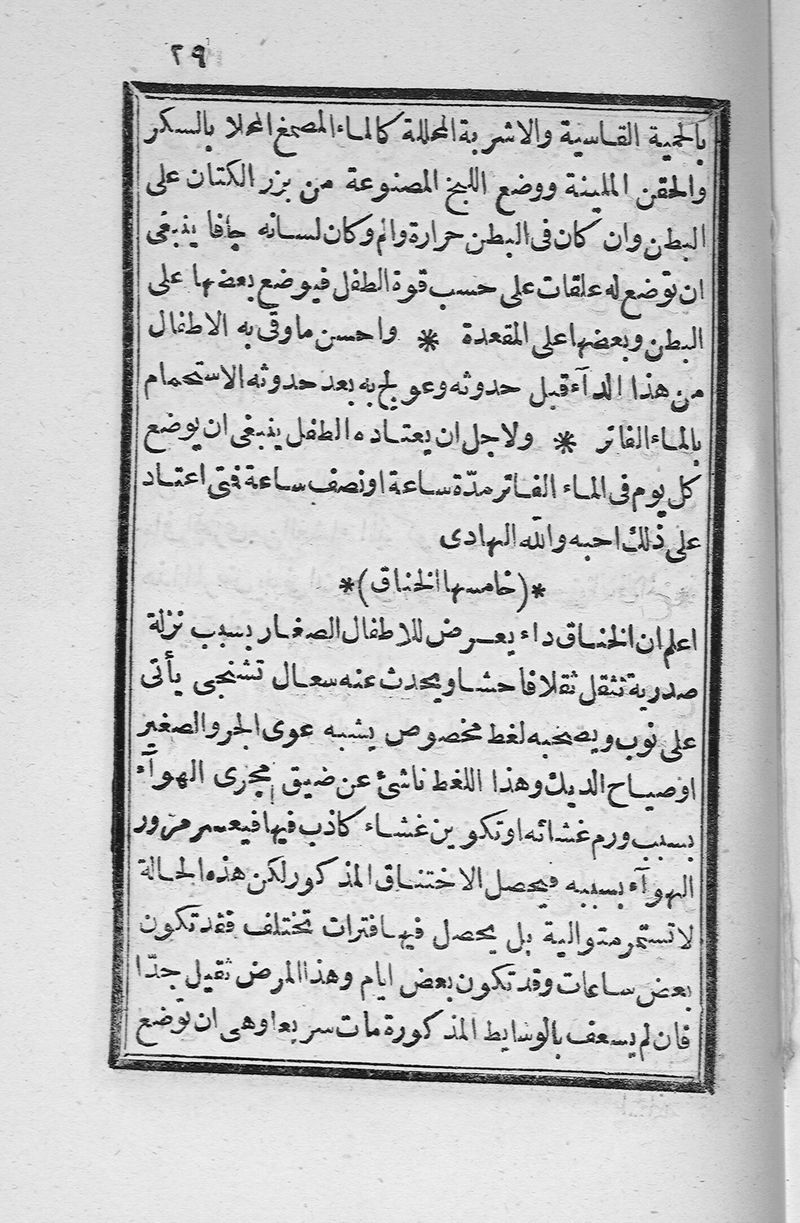 ٢٩
بالحمية القاسية والاشربة المحللة كالماء المصمغ المحلا بالسكر
والحقن الملينة ووضع اللبخ المصنوعة من بزر الكتان على
البطن وان كان فى البطن حرارة والم وكان لسانه جافا ينبغى
ان توضع له علقات على حسب قوة الطفل فيوضع بعضها على
البطن وبعضها على المقعدة * واحسن ماوقى به الاطفال
من هذا الدآء قبل حدوثه وعولج به بعد حدوثه الاستحمام
بالماء الفاتر * ولاجل ان يعتاده الطفل ينبغى ان يوضع
كل يوم فى الماء الفاتر مدّة ساعة او نصف ساعة فتى اعتاد
على ذلك احبه والله الهادى
*(خامسها الخناق)*
اعلم ان الخناق داء يعرض للاطفال الصغار بسبب نزلة
صدرية تثقل ثقلا فاحشا ويحدث عنه سعال تشنجى يأتى
على نوب ويصحبه لغط مخصوص يشبه عوى الجرو الصغير
او صياح الديك وهذا اللغط ناشئ عن ضيق مجرى الهوآء
بسبب ورم غشائه او تكوين غشاء كاذب فيها فيعسر مرور
الهوآء بسببه فيحصل الاختناق المذكور لكن هذه الحالة
لاتستمر متوالية بل يحصل فيها فترات تختلف فقد تكون
بعض ساعات وقد تكون بعض ايام وهذا المرض ثقيل جدّا
فان لم يسعف بالوسايط المذكورة مات سريعا وهى ان توضع